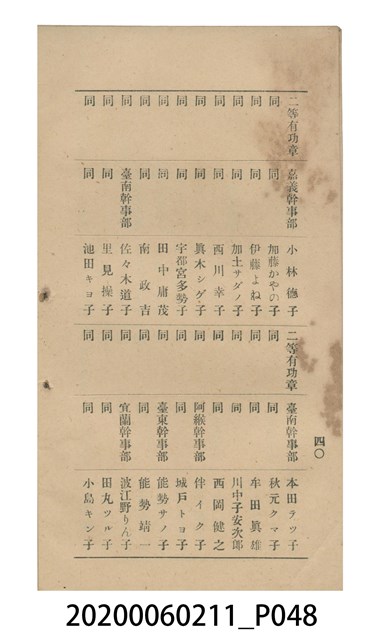 二等有功章 嘉義幹事部 小林德子
同 同 加藤かやの子
同 同 伊藤よね子
同 同 加土サダノ子
同 同 西川幸子
同 同 眞木シゲ子
同 同 宇都宮多勢子
同 同 田中庸茂
同 同 南政吉
同 臺南幹事部 佐々木道子
同 同 里見操子
同 同 池田キヨ子
二等有功章 臺南幹事部 本田ラツ子
同 同 秋元クマ子
同 同 牟田眞雄
同 同 川中子安次郎
同 同 西岡健之
同 阿緱幹事部 伴イク子
同 同 城戸トヨ子
同 臺東幹事部 能勢サノ子
同 同 能勢靖一
同 宜蘭幹事部 波江野りん子
同 同 田丸ツル子
同 同 小島キン子
四〇
20200060211_P048